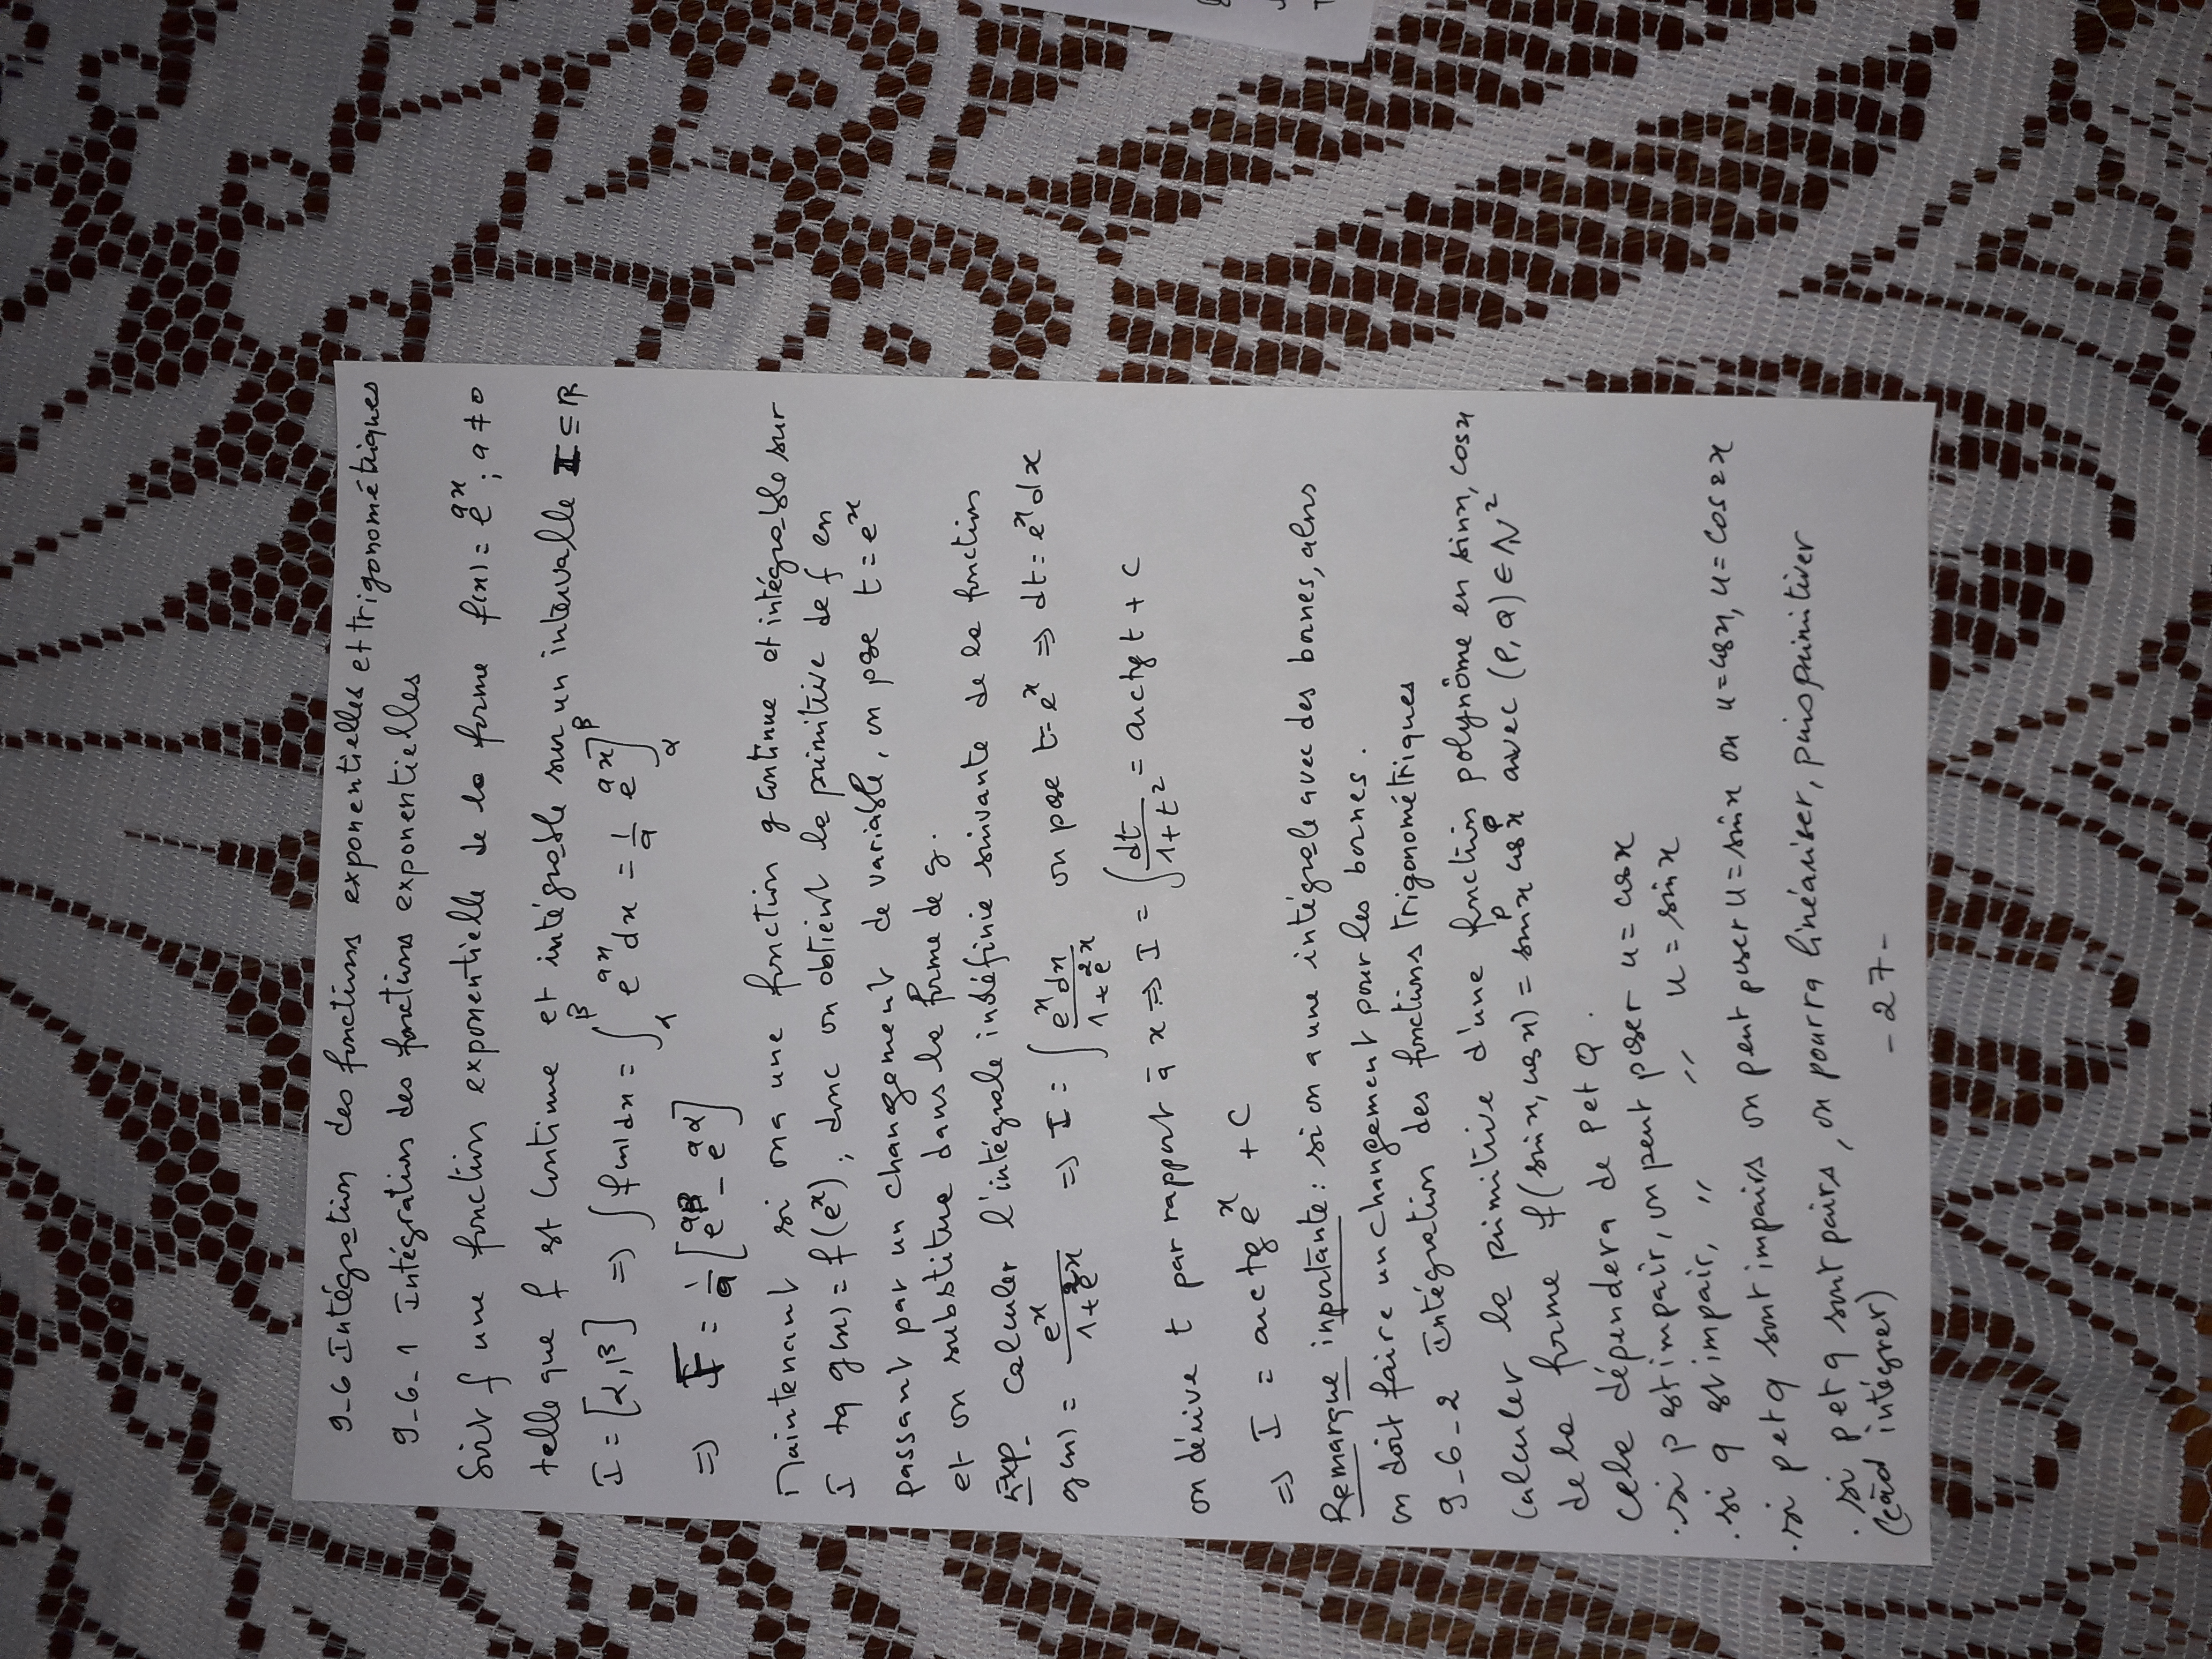 9-6 Intégration des fonctions exponentielles et trigonométriques
9-6-1 Intégration des fonctions exponentielles
Soit f une fonction exponentielle de la forme f(x) = e^{ax} ; a ≠ 0
telle que f est continue et intégrable sur un intervalle I ⊆ R
I = [α, β] ⇒ ∫ f(x) dx = ∫_α^β e^{ax} dx = 1/a e^{ax}]_α^β
⇒ I = 1/a [e^{aβ} - e^{aα}]
Maintenant si on a une fonction g continue et intégrable sur
I tq g(x) = f(e^x) ; donc on obtient la primitive de f en
passant par un changement de variable, on pose t = e^x
et on substitue dans la forme de g.
Exp- Calculer l'intégrale indéfinie suivante de la fonction
g(x) = e^x / (1 + e^{2x}) ⇒ I = ∫ e^x dx / (1 + e^{2x}) on pose t = e^x ⇒ dt = e^x dx
on dérive t par rapport à x ⇒ I = ∫ dt / (1 + t^2) = arctg t + c
⇒ I = arctg e^x + C
Remarque importante : si on a une intégrale avec des bornes, alors
on doit faire un changement pour les bornes.
9-6-2 Intégration des fonctions trigonométriques
Calculer la primitive d'une fonction polynôme en sinx, cosx
de la forme f(sin x, cos x) = sin^p x cos^q x avec (P, q) ∈ N^2
Cela dépendera de p et q.
. si p est impair, on peut poser u = cos x
. si q est impair, " " u = sin x
. si p et q sont impairs on peut poser u = sin x ou u = cos x, u = cos 2x
. si p et q sont pairs, on pourra linéariser, puis primitiver
(càd intégrer)
- 27 -